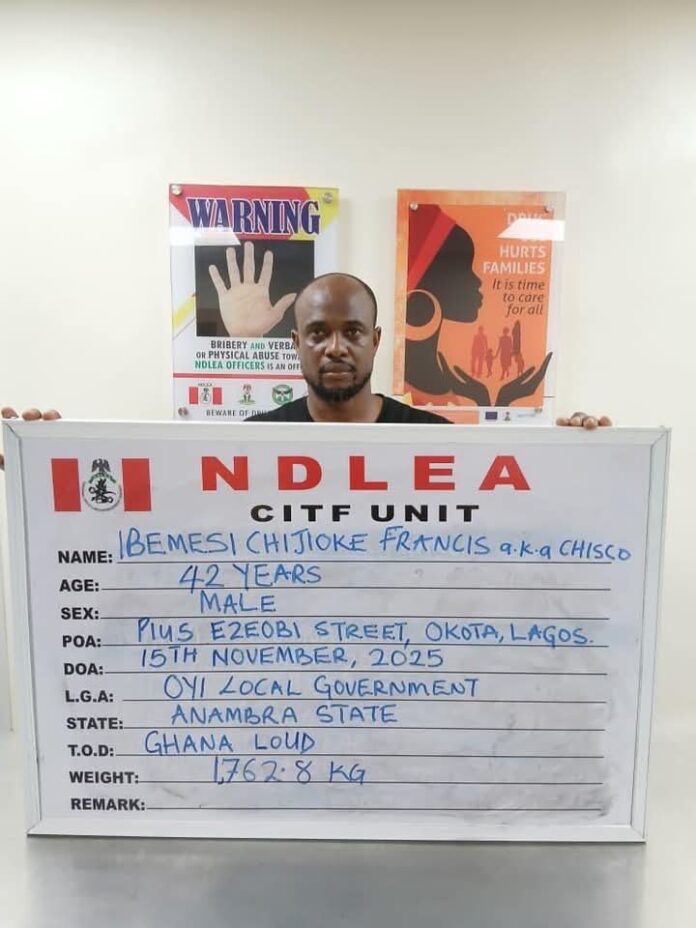 WARNING
BRIBERY AND VERBA
OR PHYSICAL ABUSE TOW
NDLEA OFFICERS IS AN OFF
NDLEA
BEWARE OF
HURTS
FAMILIES
It is time
to care
for all
NDLEA
CITF UNIT
NAME: IBEMESI CHIJIOKE FRANCIS a.k.a CHISCO
AGE: 42 YEARS
SEX: MALE
POA: PIUS EZEOBI STREET, OKOTA, LAGOS.
DOA: 15TH NOVEMBER, 2025
L.G.A: OYI LOCAL GOVERNMENT
STATE: ANAMBRA STATE
T.O.D: GHANA LOUD
WEIGHT: 1,762.8 KG
REMARK: